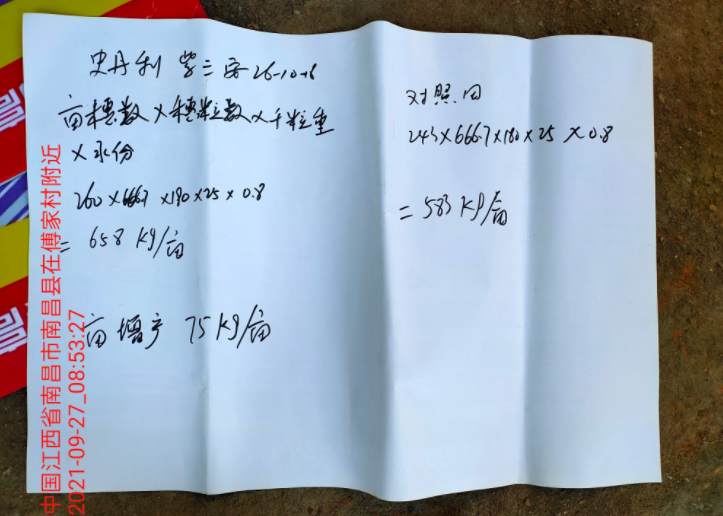 史丹利 第二名 26-10-16
亩穗数×穗粒数×千粒重
×水份
260×666.7×190×25×0.8
= 658 kg/亩
亩增产 75kg/亩
对照田
243×666.7×180×25×0.8
= 583 kg/亩
中国江西省南昌市南昌县在傅家村附近
2021-09-27_08:53:27